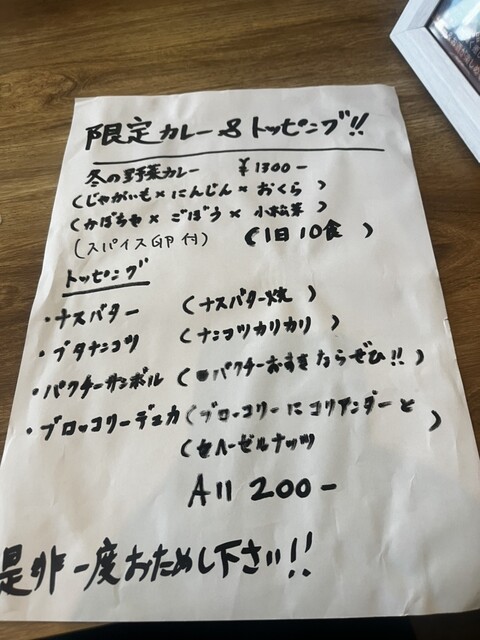 限定カレー&トッピング!!
冬の野菜カレー ¥1300-
(じゃがいも×にんじん×おくら)
(かぼちゃ×ごぼう×小松菜)
(スパイス卵付) (1日10食)
トッピング
・ナスバター (ナスバター焼)
・ブタナンコツ (ナンコツカリカリ)
・パクチーサンボル (パクチーおすきならぜひ!!)
・ブロッコリーデュカ (ブロッコリーにコリアンダーと)
(ヘーゼルナッツ
All 200-
是非一度おためし下さい!!